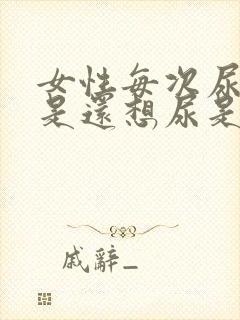 女性每次尿
是還想尿是
戚辭_